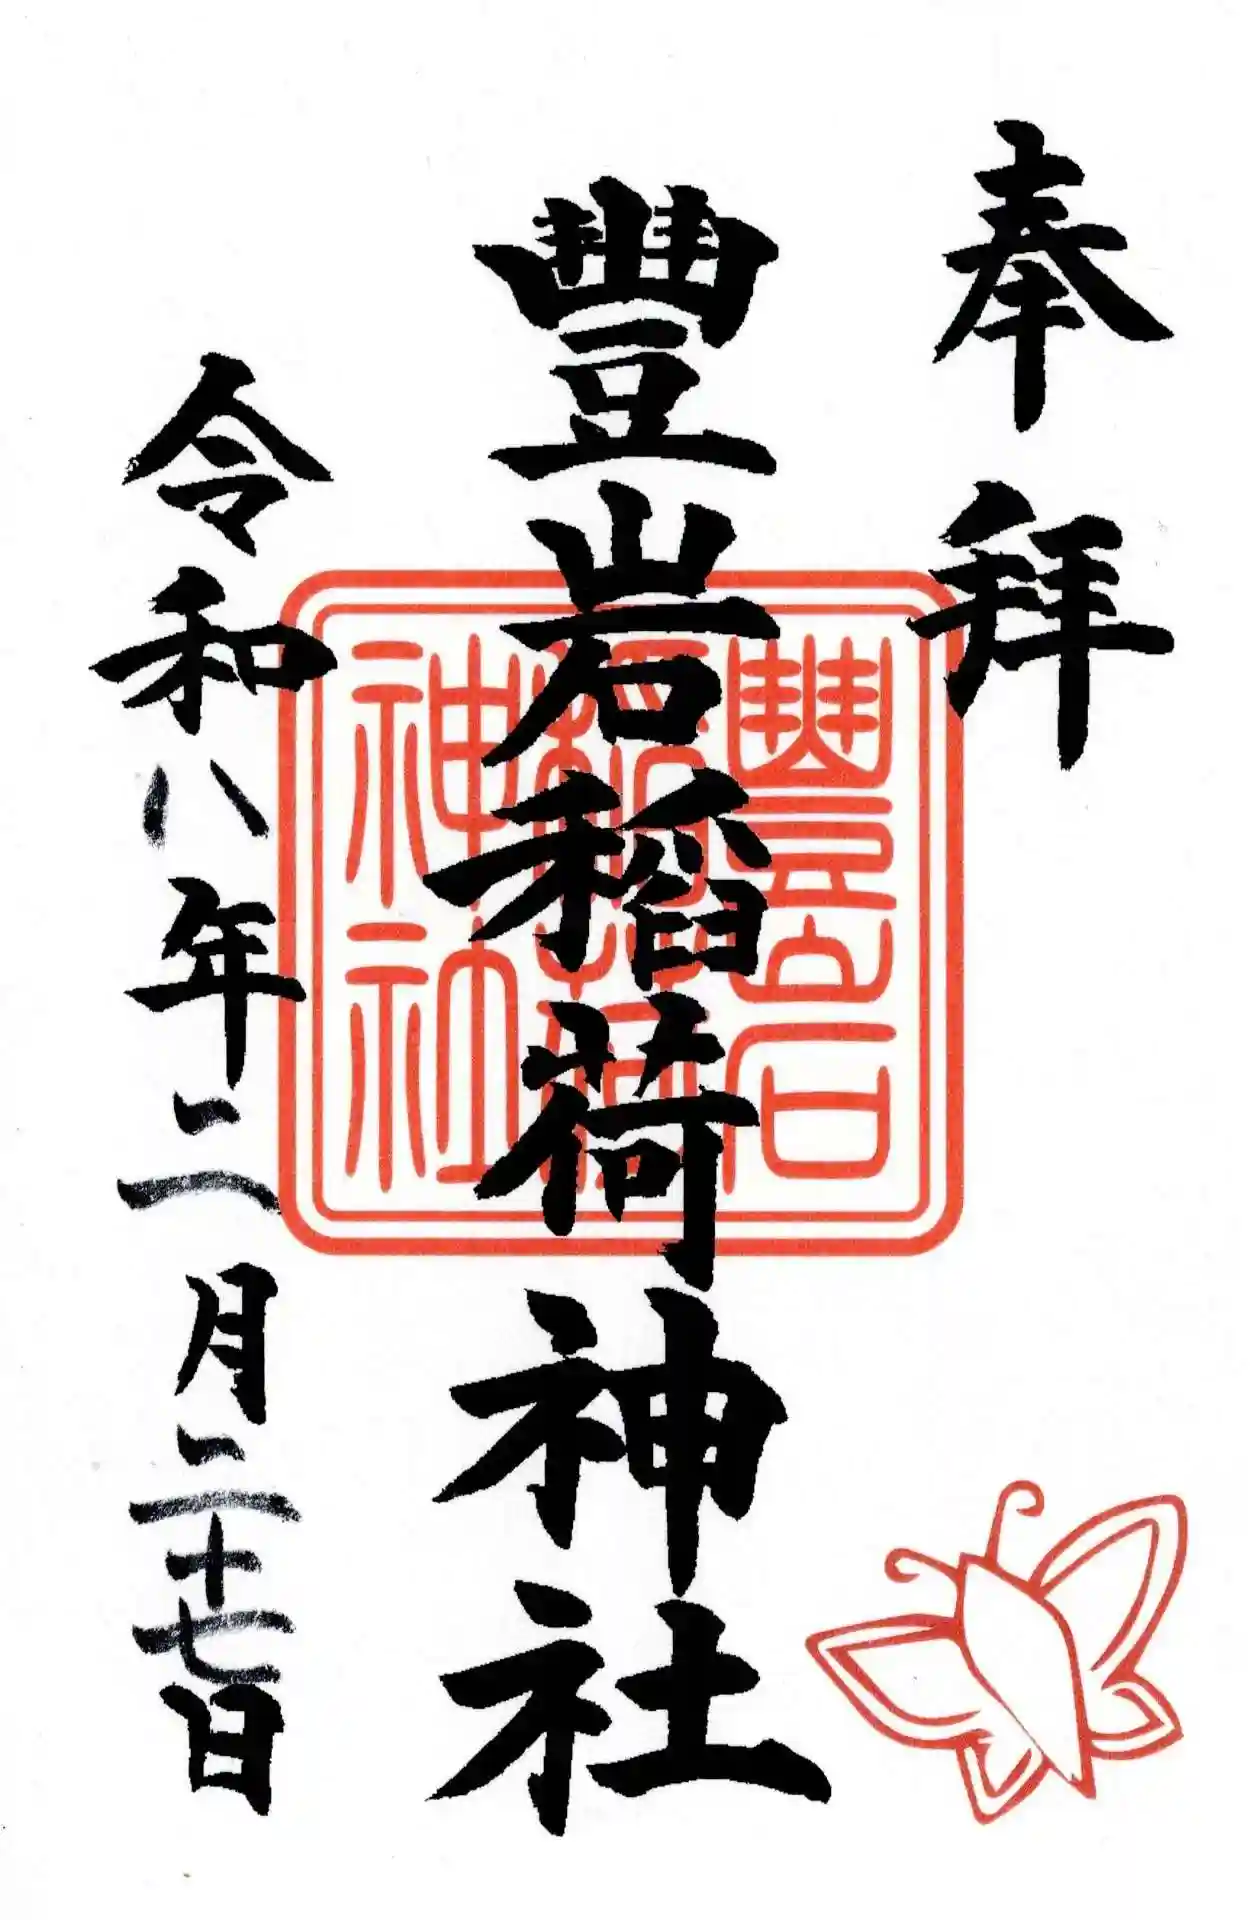 奉拝
豊岩稲荷神社
豊岩
稲荷
神社
令和八年二月二十七日